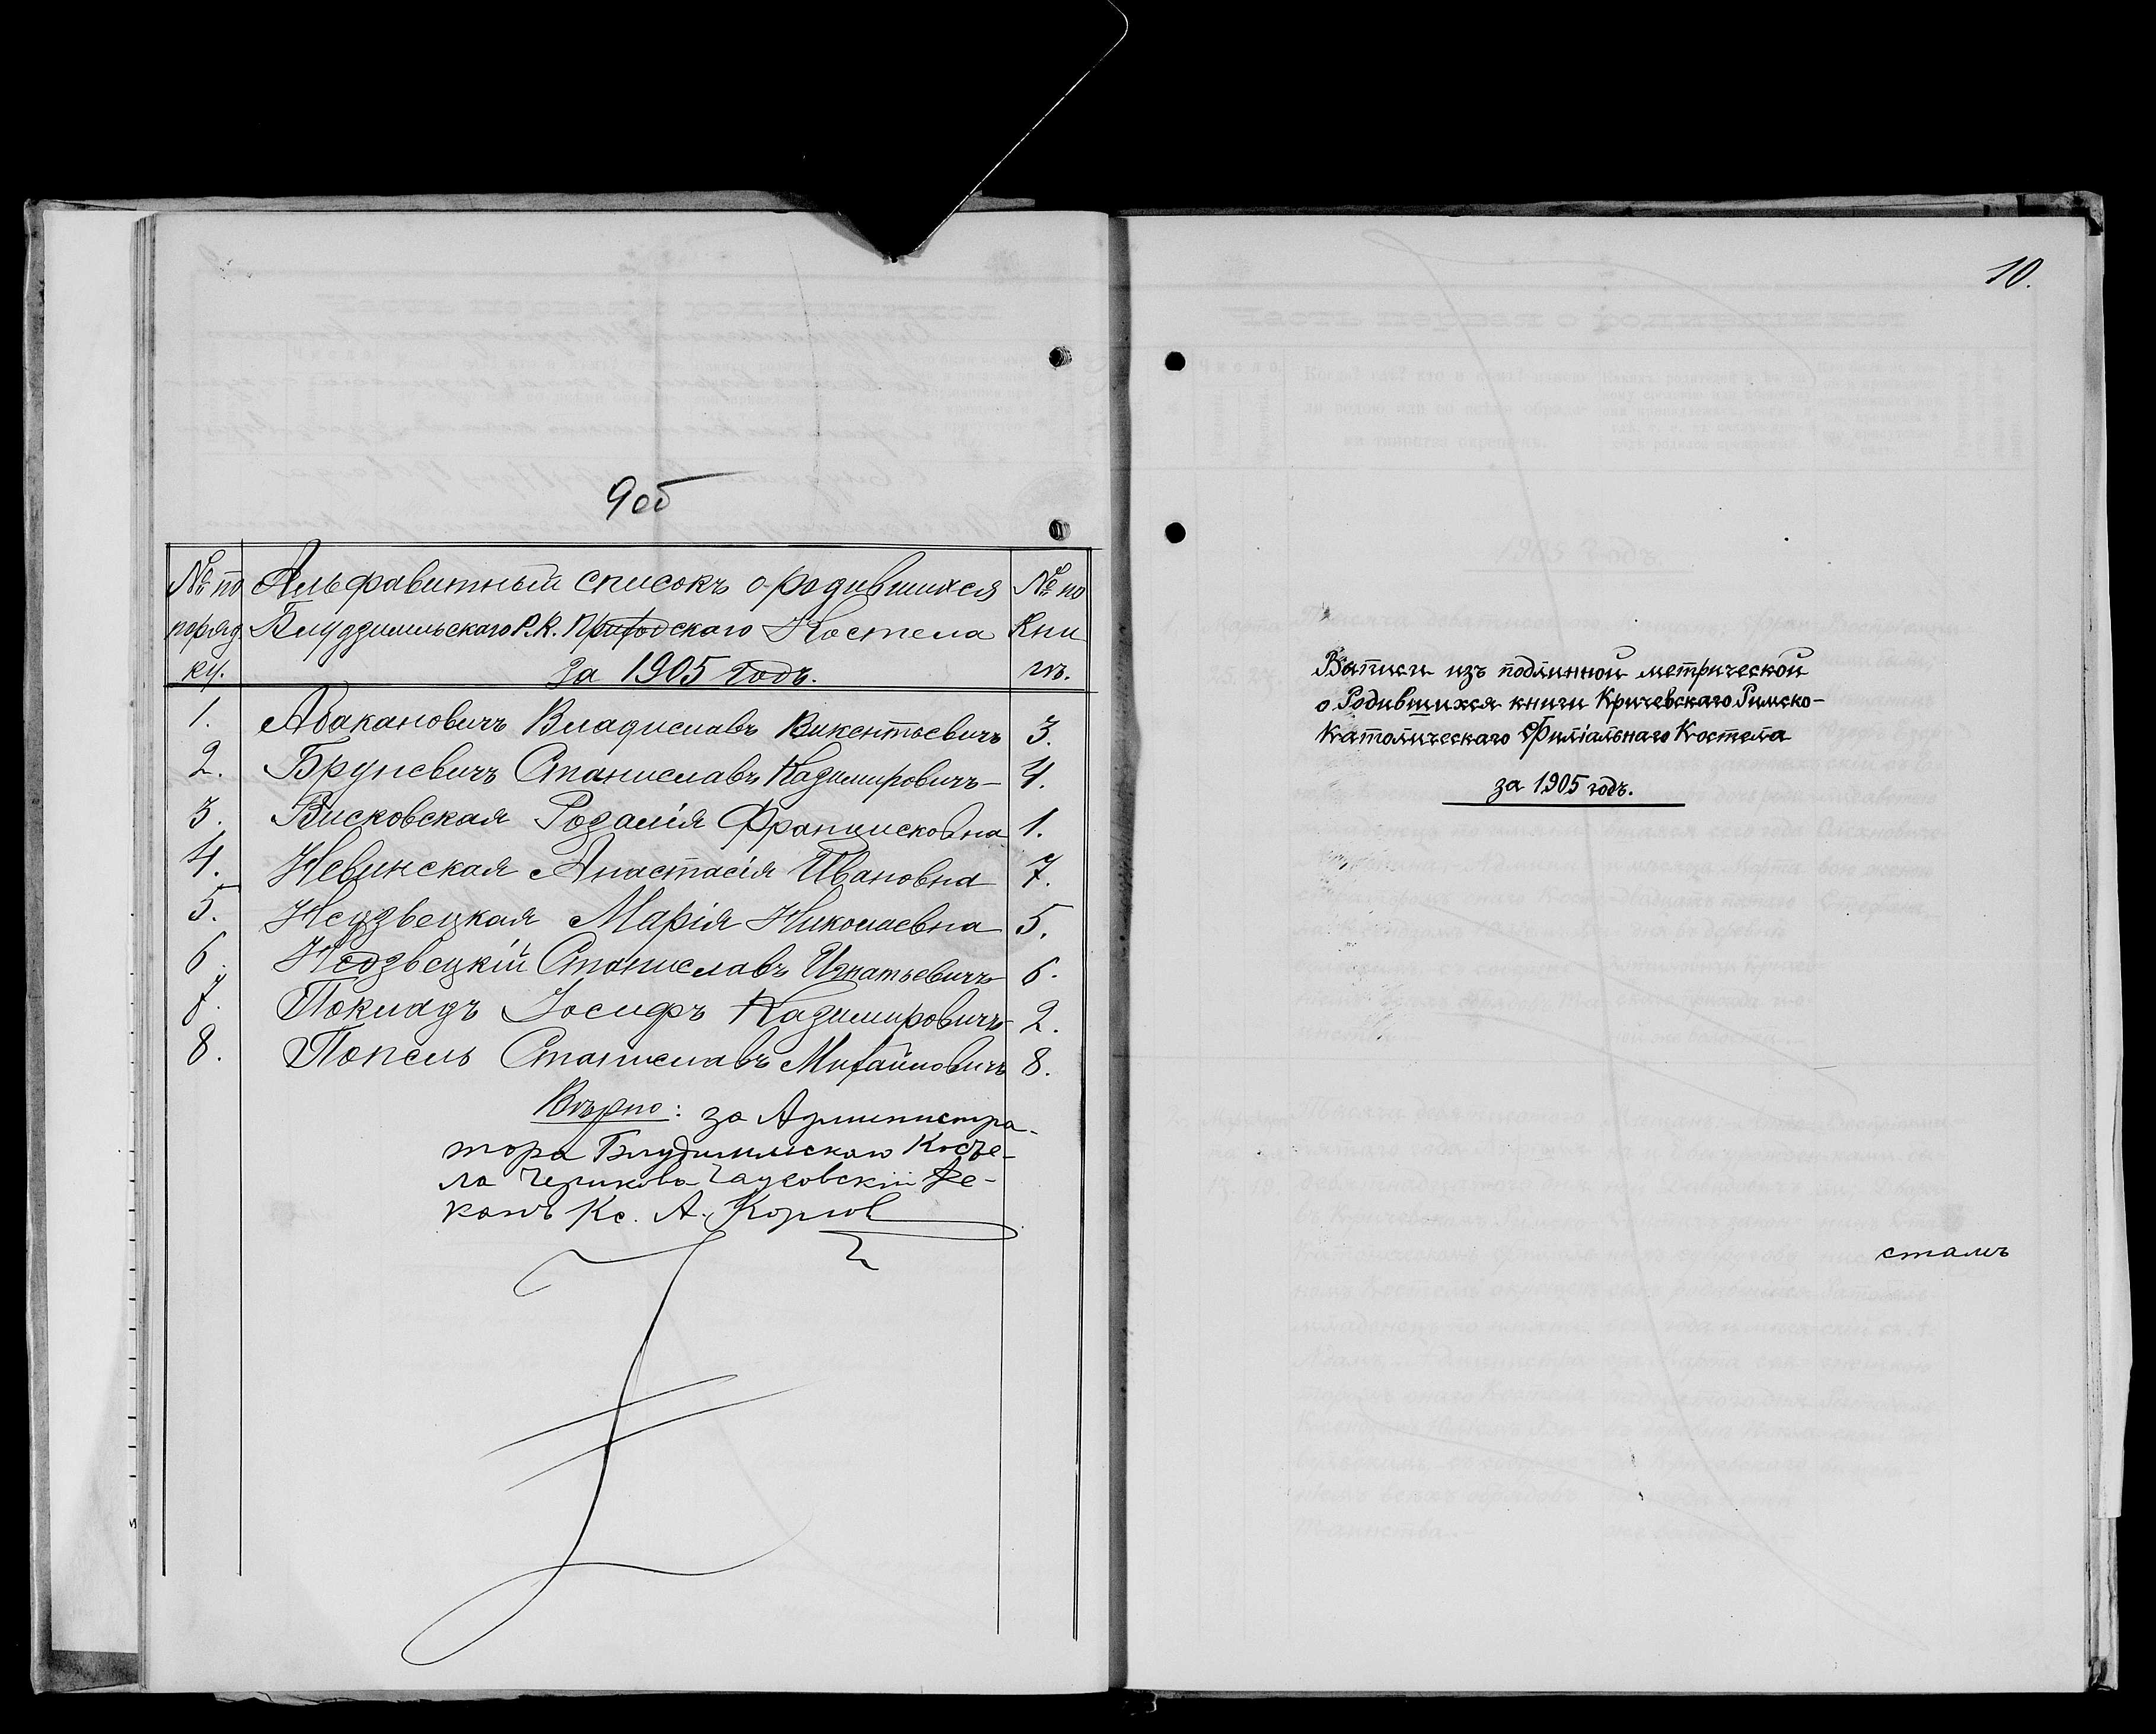 9об
№ по Альфавитный списокъ о родившихся № по
поряд Блудзимльскаго Р. К. Приходскаго Костела Кни
ку. за 1905 годъ. гѣ.
1. Абакановичъ Владиславъ Викентьевичъ 3.
2. Бруневичъ Станиславъ Казимировичъ 4.
3. Висковская Розалія Францисковна 1.
4. Невинская Анастасія Ивановна 7.
5. Недзвецкая Марія Николаевна 5.
6. Недзвецкій Станиславъ Игнатьевичъ 6.
7. Покладъ Іосифъ Казимировичъ 2.
8. Попель Станиславъ Михайловичъ 8.
Вѣрно: за Администра-
тора Костё-
ла Чериково-Чаусовскій Де-
канъ Кс. А.
10.
Выписи изъ подлинной метрической
о Родившихся книги Кричевскаго Римско-
Католическаго Филіальнаго Костела
за 1905 годъ.
сталъ